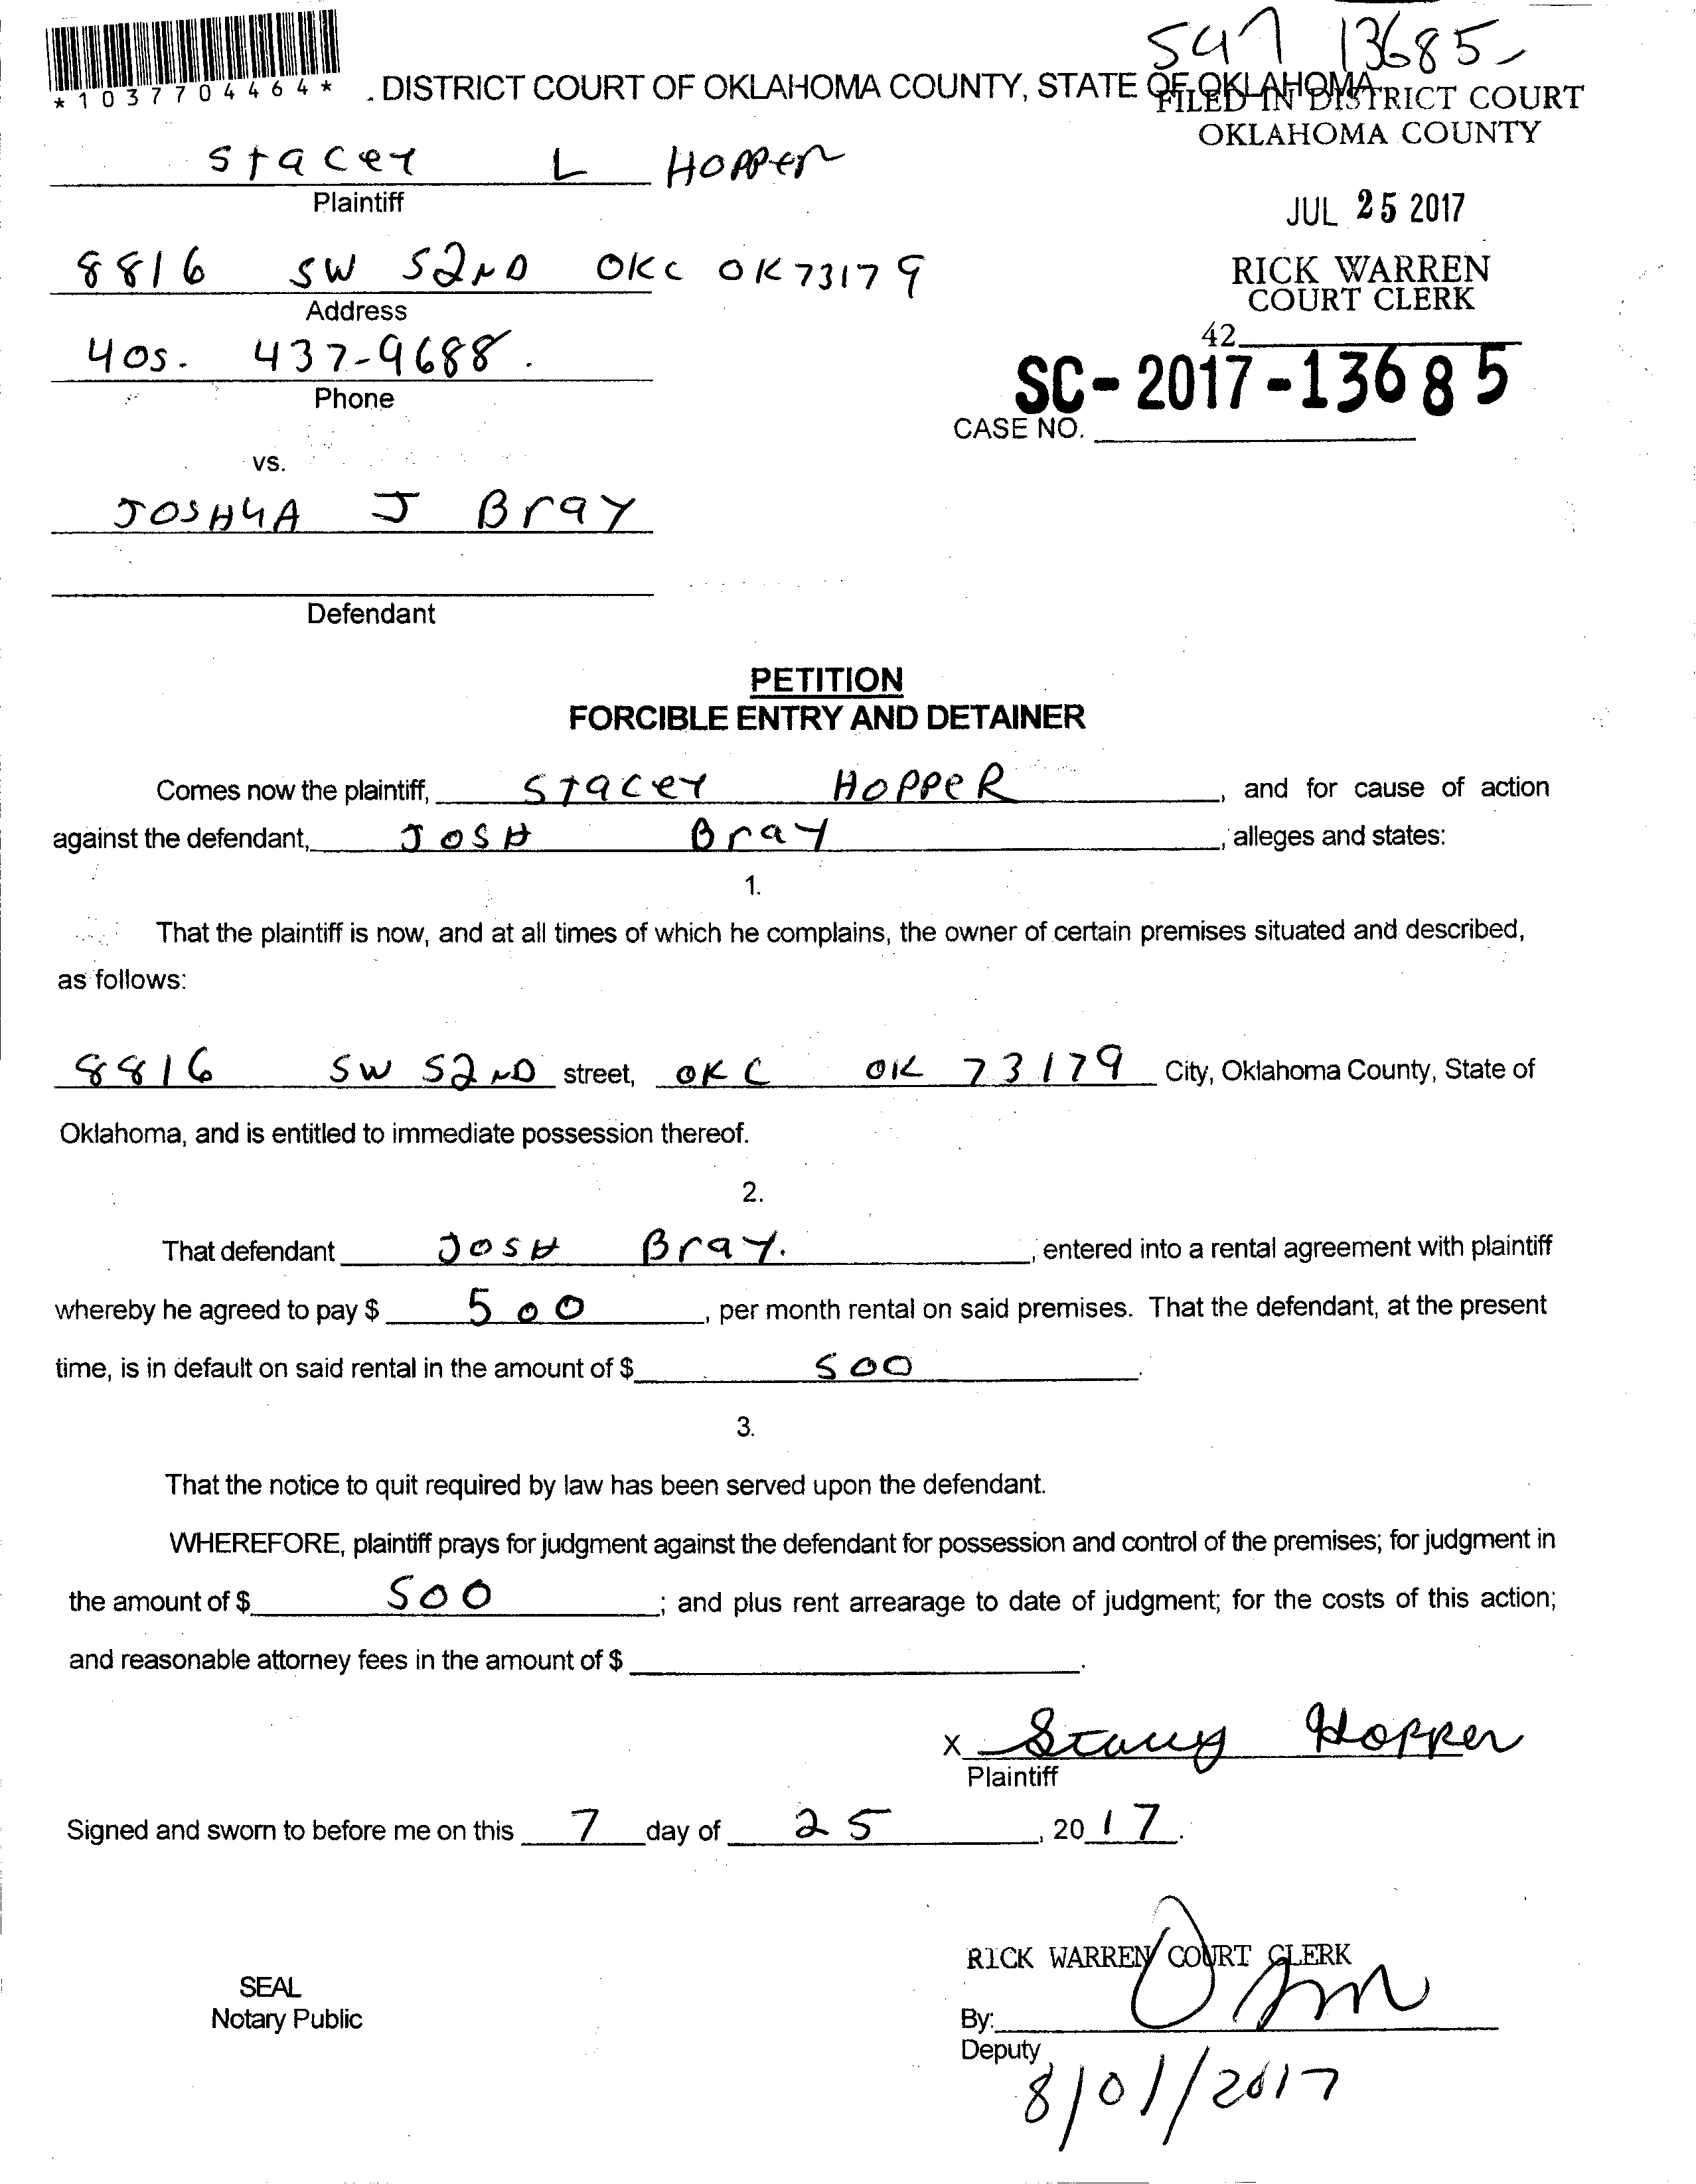 547 13685
*1037704464*
DISTRICT COURT OF OKLAHOMA COUNTY, STATE OF OKLAHOMA
FILED IN DISTRICT COURT
OKLAHOMA COUNTY
Stacey L Hopper
Plaintiff
JUL 25 2017
8816 SW 52ND OKC OK 73179
Address
RICK WARREN
COURT CLERK
42
405. 437-9688.
Phone
SC-2017-13685
CASE NO.
vs.
JOSHUA J Bray
Defendant
PETITION
FORCIBLE ENTRY AND DETAINER
Comes now the plaintiff, Stacey HOPPeR, and for cause of action
against the defendant, JOSH Bray, alleges and states:
1.
That the plaintiff is now, and at all times of which he complains, the owner of certain premises situated and described,
as follows:
8816 SW 52ND street, OKC OK 73179 City, Oklahoma County, State of
Oklahoma, and is entitled to immediate possession thereof.
2.
That defendant JOSH Bray., entered into a rental agreement with plaintiff
whereby he agreed to pay $ 500, per month rental on said premises. That the defendant, at the present
time, is in default on said rental in the amount of $ 500.
3.
That the notice to quit required by law has been served upon the defendant.
WHEREFORE, plaintiff prays for judgment against the defendant for possession and control of the premises; for judgment in
the amount of $ 500; and plus rent arrearage to date of judgment; for the costs of this action;
and reasonable attorney fees in the amount of $ .
X Stacey Hopper
Plaintiff
Signed and sworn to before me on this 7 day of 25, 2017.
RICK WARREN COURT CLERK
SEAL
Notary Public
By:
Deputy
8/01/2017